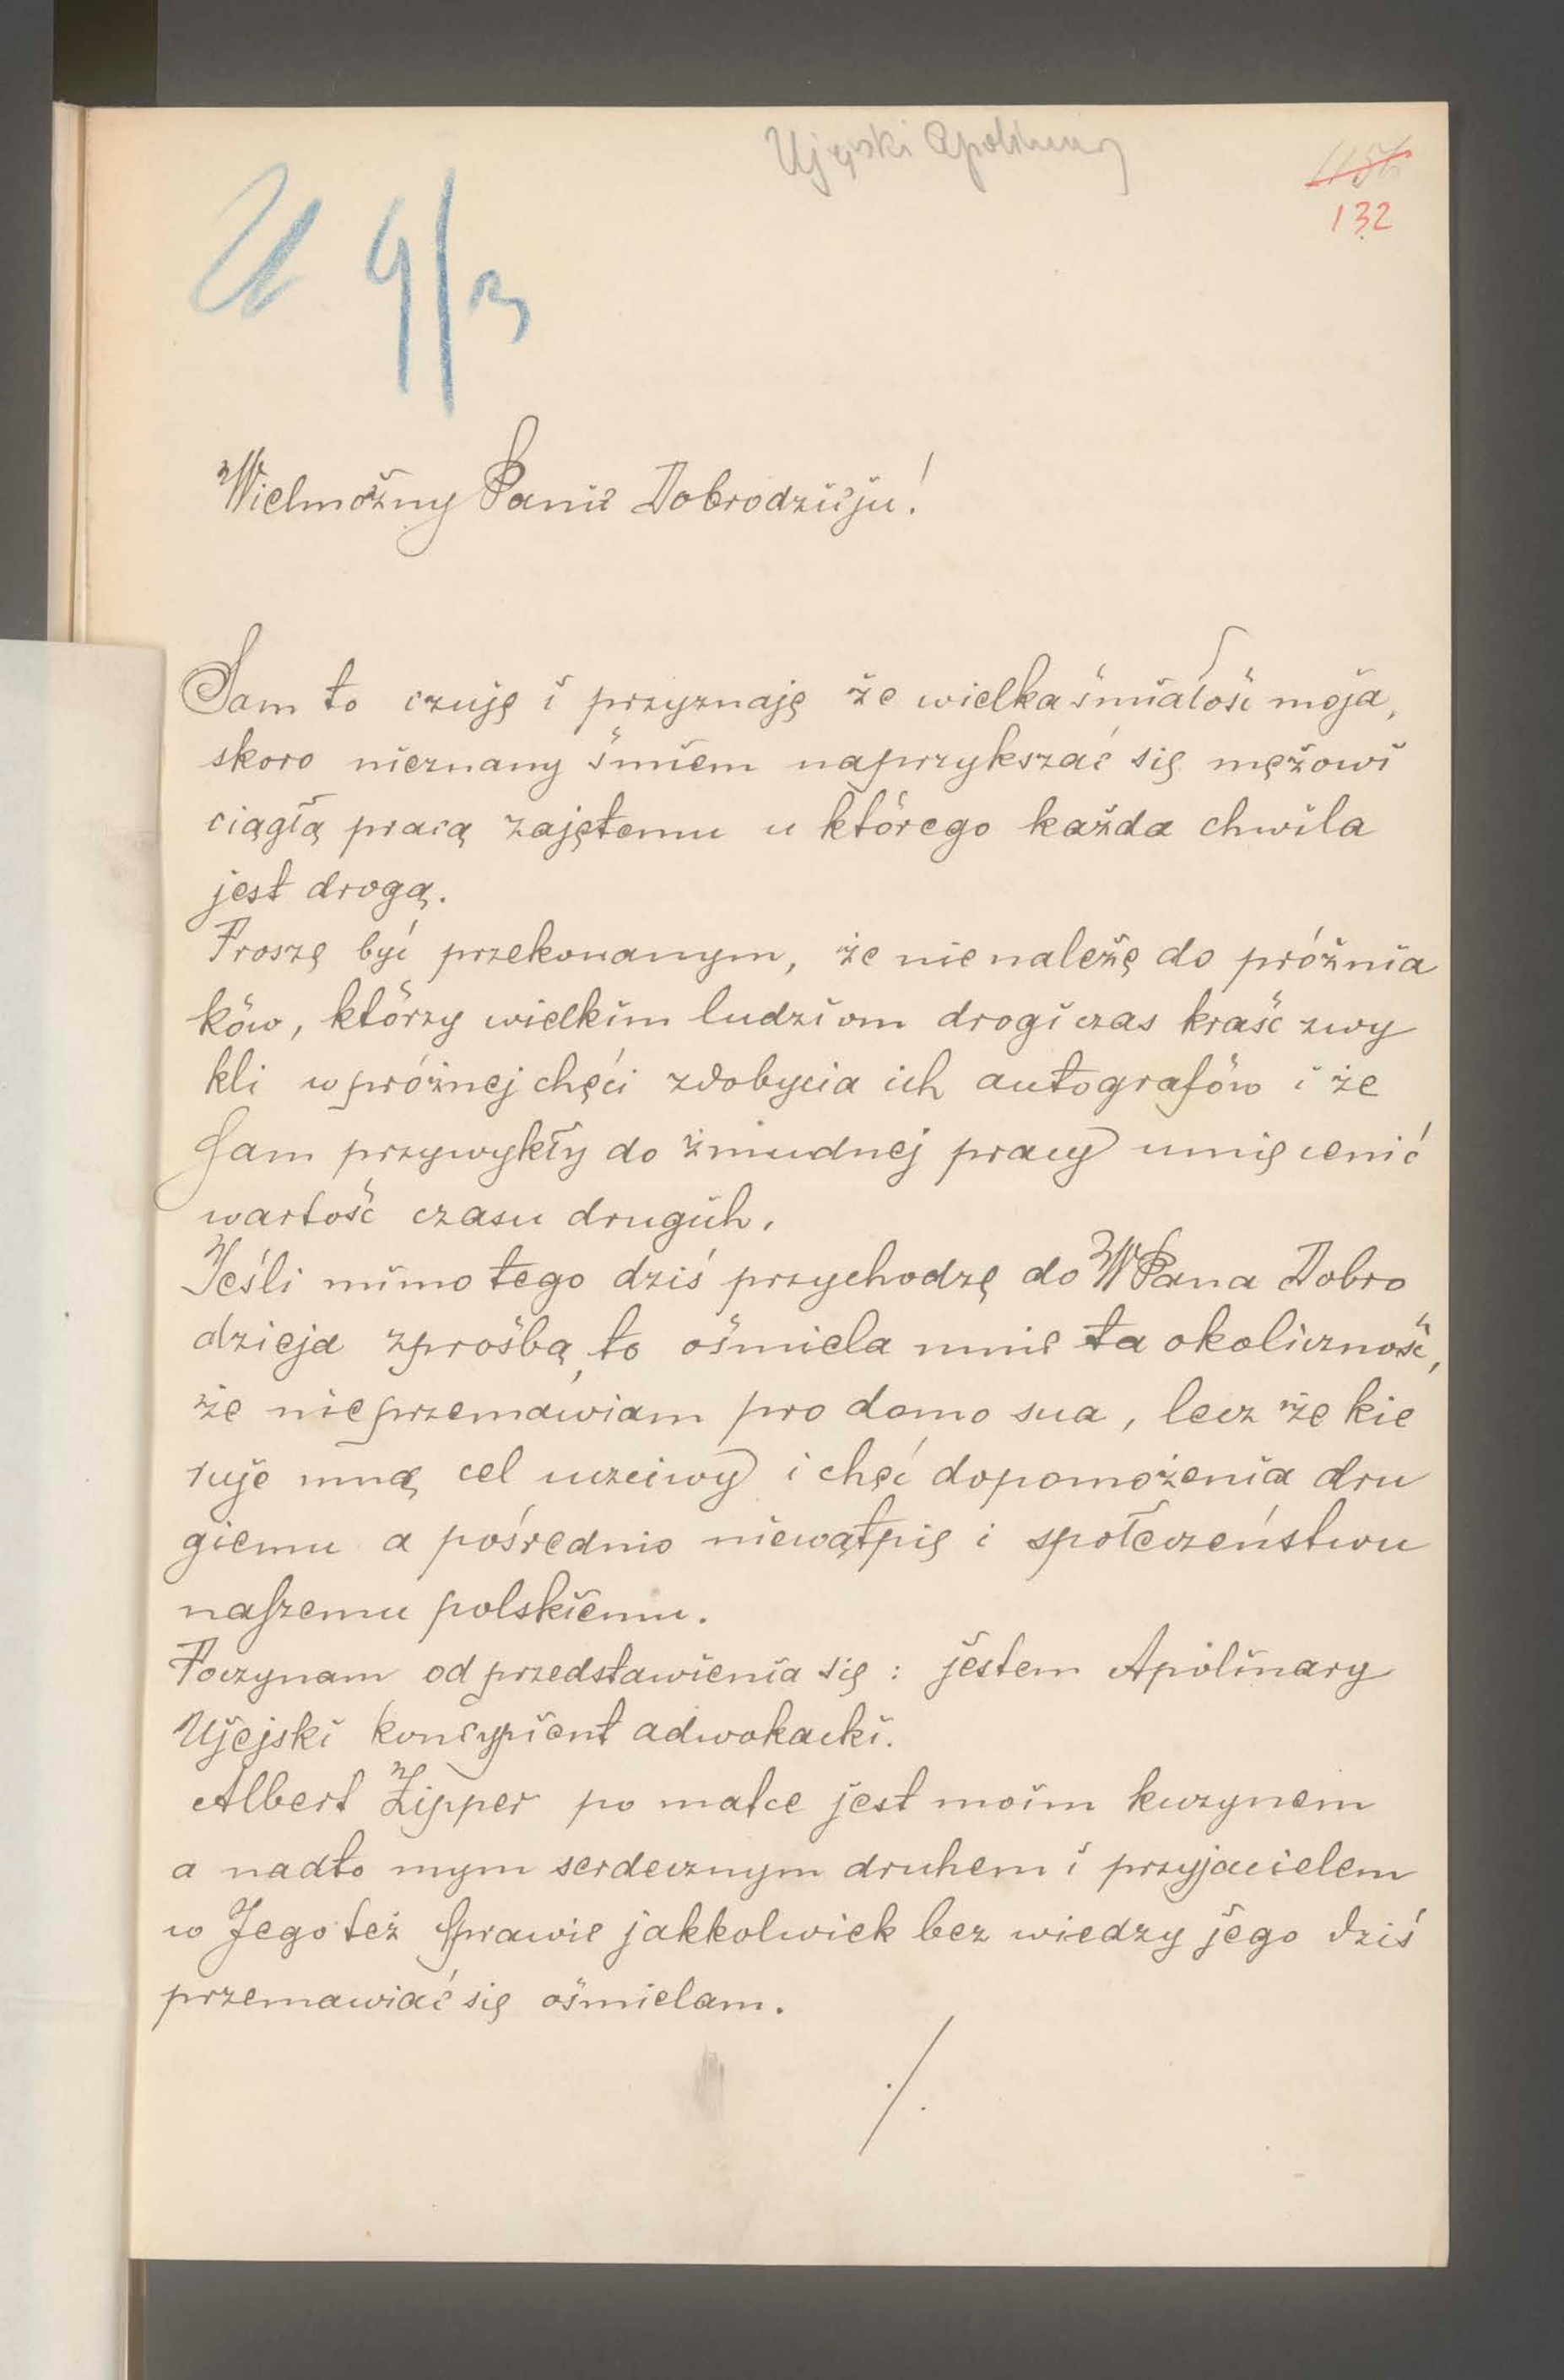 Ujejski Apolinary
132
U 9/3
Wielmożny Panie Dobrodzieju!
Sam to czuję i przyznaję że wielka śmiałość moja,
skoro nieznany śmiem naprzykszać się mężowi
ciągłą pracą zajętemu u którego każda chwila
jest drogą.
Proszę być przekonanym, że nie należę do próżnia
ków, którzy wielkim ludziom drogi czas kraść zwy
kli w próżnej chęci zdobycia ich autografów i że
sam przywykły do żmudnej pracy umię cenić
wartość czasu drugich.
Jeśli mimo tego dziś przychodzę do WPana Dobro
dzieja z prośbą, to ośmiela mnie ta okoliczność,
że nie przemawiam pro domo sua, lecz że kie
ruje mną cel uczciwy i chęć dopomożenia dru
giemu a pośrednio niewątpię i społeczeństwu
naszemu polskiemu.
Poczynam od przedstawienia się: jestem Apolinary
Ujejski koncypient adwokacki.
Albert Zipper po matce jest moim kuzynem
a nadto mym serdecznym druhem i przyjacielem
w Jego też sprawie jakkolwiek bez wiedzy jego dziś
przemawiać się ośmielam.
./.